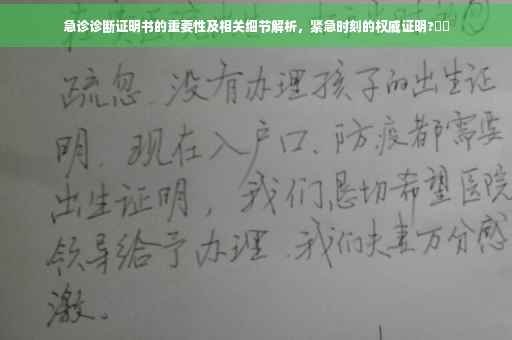 急诊诊断证明书的重要性及相关细节解析，紧急时刻的权威证明?
疏忽、没有办理孩子的出生证
明、现在入户口、防疫都需要
出生证明，我们恳切希望医院
领导给予办理、我们夫妻万分感
激。